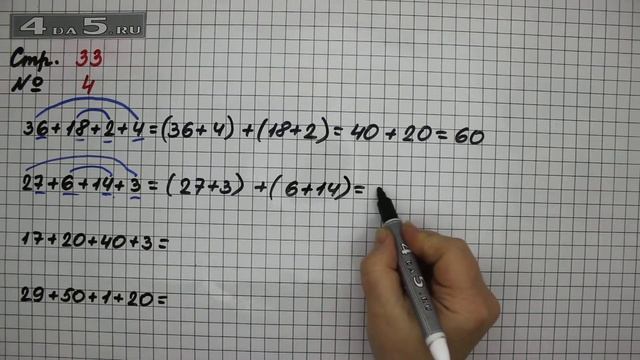 4DA5.RU
Стр. 33
№ 4
36+18+2+4=(36+4)+(18+2)=40+20=60
27+6+14+3=(27+3)+(6+14)=
17+20+40+3=
29+50+1+20=
4DA5.RU